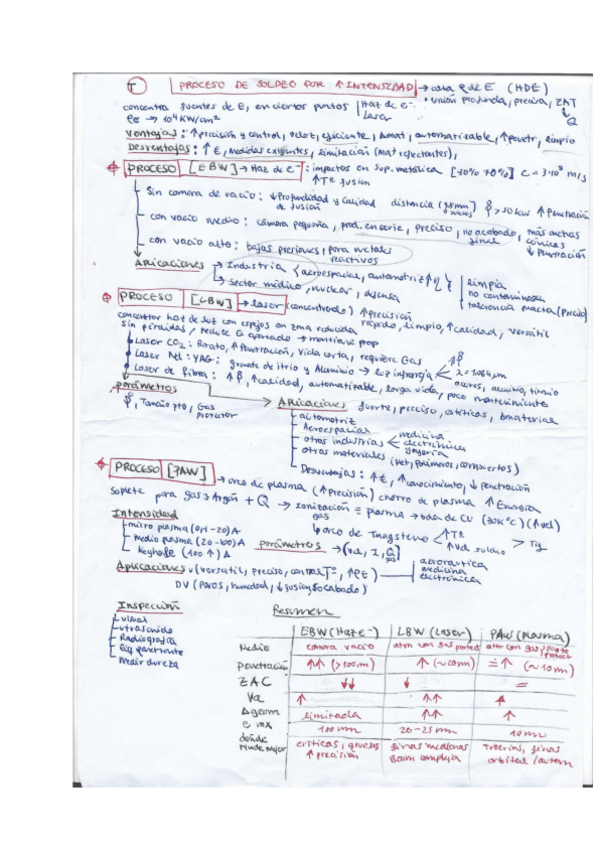 T PROCESO DE SOLDEO POR ↑ INTENSIDAD → alta ρ de E (HDE)
concentra fuentes de E, en ciertos puntos | Haz de e⁻ • unión profunda, precisa, ZAT
Laser Q
ρE → 10⁴ KW/cm²
Ventajas: ↑ precisión y control, veloz, eficiente, Δmat, automatizable, ↑ penetr, limpio
Desventajas: ↑ €, medidas exigentes, limitación (mat reflectantes),
PROCESO [EBW] → Haz de e⁻: impactos en sup. metálica [-10 70%] C = 3·10⁸ m/s
↑ Tª fusión
Sin camara de vacio: ↓ Profundidad y Calidad de fusión distancia > 50 kW ↑ Penetración
con vacio medio: cámara pequeña, prod. en serie, preciso, no acabado final, más anchas
cónicas
↓ Penetración
con vacio alto: bajas presiones, para metales
reactivos
Aplicaciones → Industria { aeroespacial, automotriz ↑ η { limpia
no contaminosa
→ Sector médico, nuclear, defensa tolerancia exacta
PROCESO [LBW] → Laser (concentrado) ↑ precisión
rápido, limpio, ↑ calidad, versátil
concentrar haz de luz con espejos en zona reducida
sin pérdidas, reduce G aportado → mantiene prop
Laser CO₂: Barato, ↑ Penetración, vida corta, requiere Gas
Laser Nd: YAG: granate de itrio y Aluminio → luz infrarroja λ = 1.064 μm
Laser de fibra: ↑ calidad, automatizable, larga vida, poco mantenimiento
aceros, aluminio, titanio
parámetros
Tamaño pto, Gas
protector
Aplicaciones fuerte, preciso, estéticas, Δmaterial
automotriz
Aeroespacial
otras industrias medicina
electrónica
joyería
otros materiales (vet, polímeros, compuestos)
Desventajas: ↑ €, ↑ conocimiento, ↓ penetración
PROCESO [PAW] → arco de plasma (↑ precisión) chorro de plasma ↑ Energía
Soplete para gas → Argón + Q → Ionización gas = plasma → (30K °C) (↑ vel)
Intensidad → arco de Tungsteno ↑ Tª
↑ Vel soldeo > Tig
micro plasma (0,1-20) A
medio plasma (20-100) A
Keyhole (100 ↑) A parámetros → (Va, I, Q gas)
Aplicaciones V (versatil, preciso, control Tª, ↑ ρE) aeronautica
medicina
electrónica
DV (Poros, humedad, ↓ fusión, Socabado)
Inspección
visual
ultrasonido
Radiografia
liq penetrante
Medir dureza
Resumen
EBW (Haz e⁻) LBW (Laser) PAW (Plasma)
Medio camara vacio atm con gas protect atm con gas protect
penetración ↑↑ (>100m) ↑ (~20mm) = ↑ (~10mm)
ZAC ↓↓ ↓ =
Va ↑ ↑↑ ↑
Δgeom limitada ↑↑ ↑
e mx 100 mm 20-25 mm 10 mm
donde rinde mejor criticas, gruesas finas medianas Tuberias, finas
↑ precisión Geom compleja orbital / autom